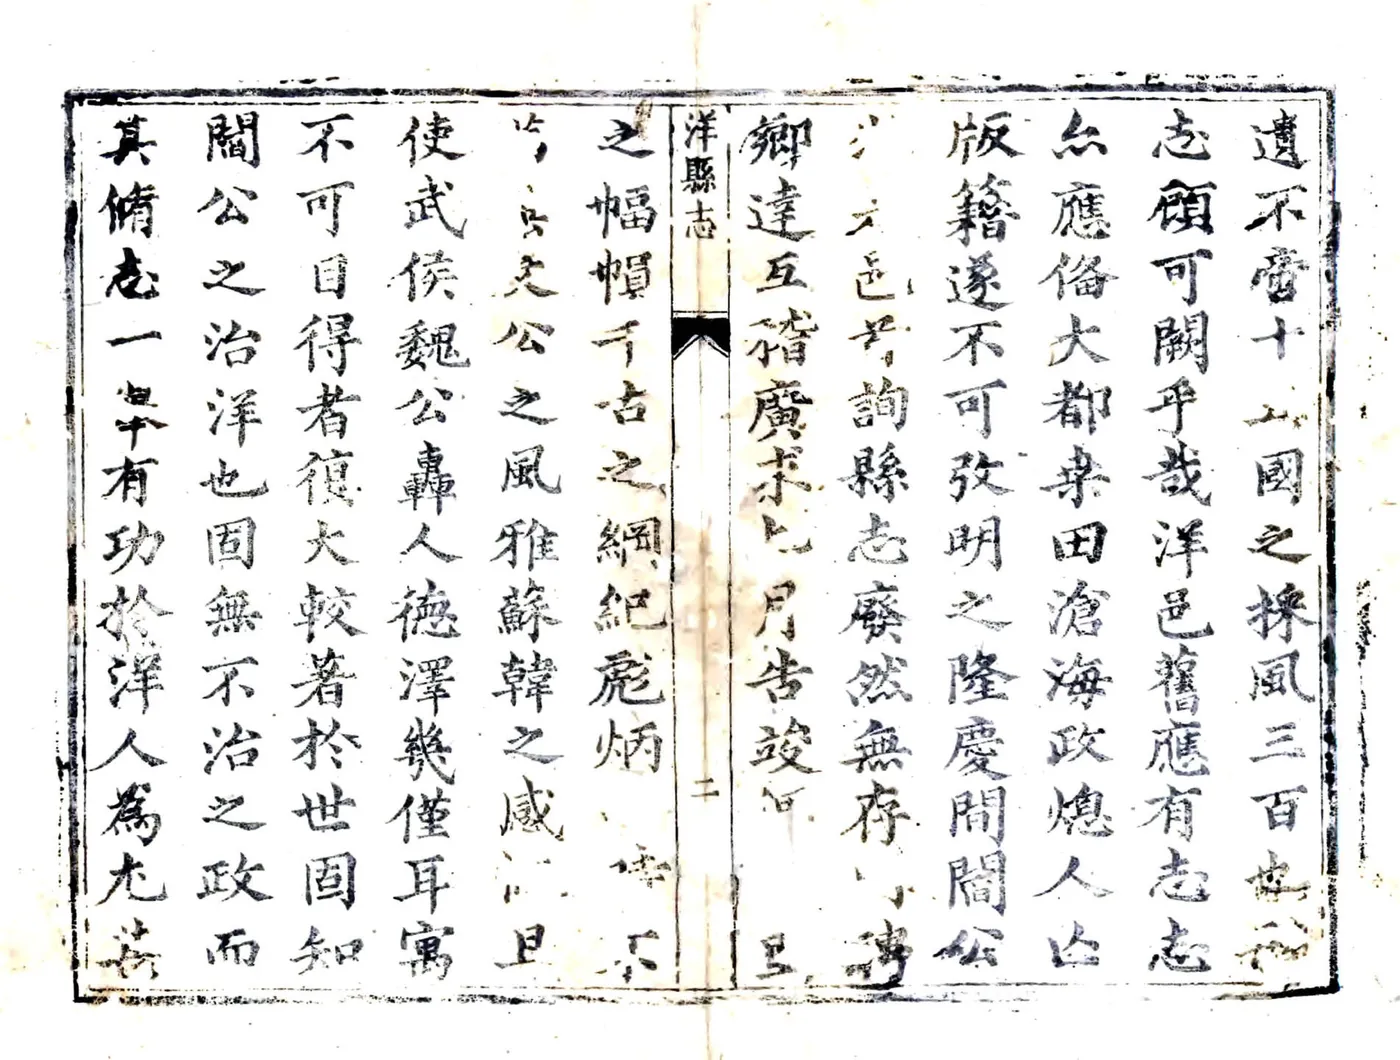 遺不啻十國之採風三百也
志顧可闕乎哉洋邑舊應有志志
亦應俻大都桒田滄海政熄人亡
版籍遂不可攷明之隆慶間閻公
邑詢縣志廢然無存
鄉達互稽廣求月告竣
洋縣志
二
之幅幀千古之綱紀彪炳
文公之風雅蘇韓之感且
使武侯魏公轟人德澤幾僅耳寓
不可目得者復大較著於世固知
閻公之治洋也固無不治之政而
其脩志一有功於洋人為尤